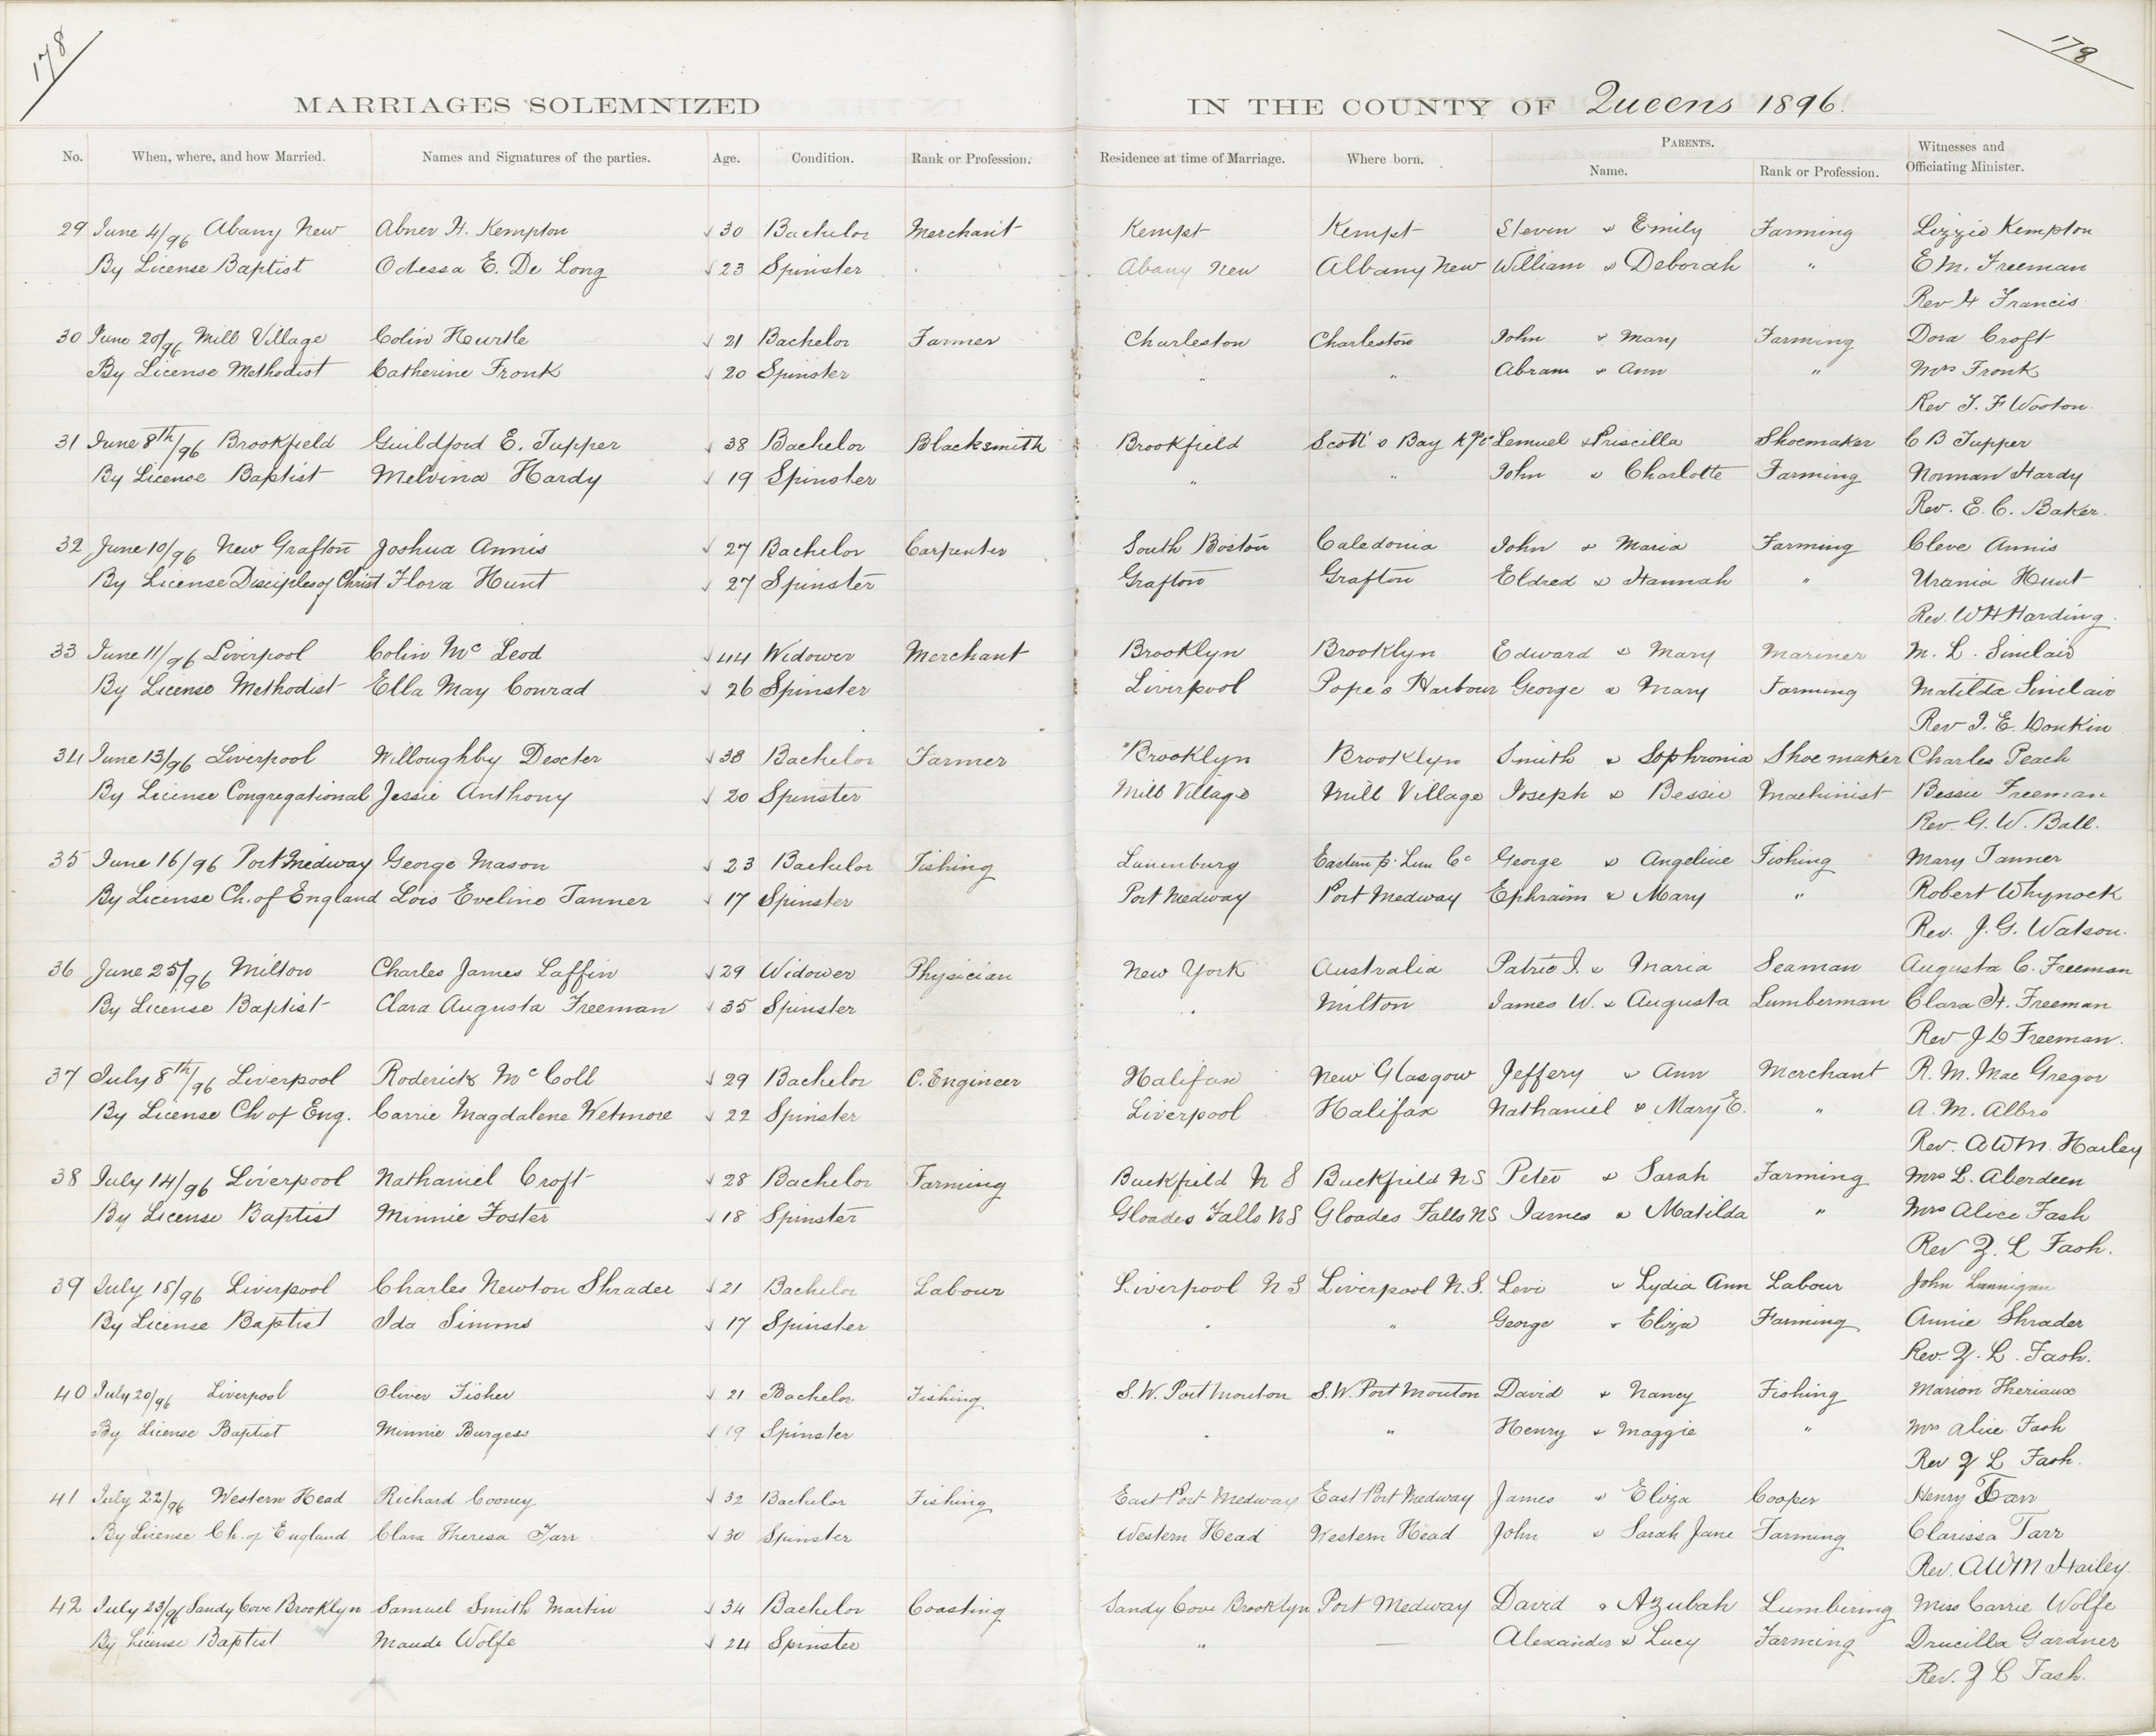 178
178
MARRIAGES SOLEMNIZED IN THE COUNTY OF Queens 1896.
No. When, where, and how Married. Names and Signatures of the parties. Age. Condition. Rank or Profession. Residence at time of Marriage. Where born. PARENTS. Name. Rank or Profession. Witnesses and Officiating Minister.
29 June 4/96 Abany New Abner H. Kempton √ 30 Bachelor Merchant Kempt Kempt Steven & Emily Farming Lizzie Kempton
By License Baptist Odessa E. De Long √ 23 Spinster Abany New Albany New William & Deborah " E M. Freeman
Rev H Francis
30 June 20/96 Mill Village Colin Heurtle √ 21 Bachelor Farmer Charleston Charleston John & Mary Farming Dora Croft
By License Methodist Catherine Fronk √ 20 Spinster " " Abram & Ann " Mrs Fronk
Rev J. F Wooton.
31 June 8th/96 Brookfield Guildford E. Tupper √ 38 Bachelor Blacksmith Brookfield Scott's Bay Lemuel & Priscilla Shoemaker C B Tupper
By License Baptist Melvina Hardy √ 19 Spinster " " John & Charlotte Farming Norman Hardy
Rev. E. C. Baker.
32 June 10/96 New Grafton Joshua Annis √ 27 Bachelor Carpenter South Boston Caledonia John & Maria Farming Cleve Annis
By License Disciples of Christ Flora Hunt √ 27 Spinster Grafton Grafton Eldred & Hannah " Urania Hunt
Rev. W H Harding.
33 June 11/96 Liverpool Colin Mc Leod √ 44 Widower Merchant Brooklyn Brooklyn Edward & Mary Mariner M. L. Sinclair
By License Methodist Ella May Conrad √ 26 Spinster Liverpool Pope's Harbour George & Mary Farming Matilda Sinclair
Rev I. E. Donkin
34 June 13/96 Liverpool Willoughby Dexter √ 38 Bachelor Farmer Brooklyn Brooklyn Smith & Sophronia Shoemaker Charles Peach
By License Congregational Jessie Anthony √ 20 Spinster Mill Village Mill Village Joseph & Bessie Machinist Bessie Freeman
Rev. G. W. Ball.
35 June 16/96 Port Medway George Mason √ 23 Bachelor Fishing Lunenburg Eastern p. Lun Co George & Angeline Fishing Mary Tanner
By License Ch. of England Lois Eveline Tanner √ 17 Spinster Port Medway Port Medway Ephraim & Mary " Robert Whynock
Rev. J. G. Watson.
36 June 25/96 Milton Charles James Laffin √ 29 Widower Physician New York Australia Patric J. & Maria Seaman Augusta C. Freeman
By License Baptist Clara Augusta Freeman √ 35 Spinster " Milton James W. & Augusta Lumberman Clara H. Freeman
Rev J D Freeman.
37 July 8th/96 Liverpool Roderick Mc Coll √ 29 Bachelor C. Engineer Halifax New Glasgow Jeffery & Ann Merchant R. M. Mac Gregor
By License Ch of Eng. Carrie Magdalene Wetmore √ 22 Spinster Liverpool Halifax Nathaniel & Mary E. " A. M. Albro
Rev. A W M. Harley
38 July 14/96 Liverpool Nathaniel Croft √ 28 Bachelor Farming Buckfield N S Buckfield N S Peter & Sarah Farming Mrs L. Aberdeen
By License Baptist Minnie Foster √ 18 Spinster Gloades Falls NS Gloades Falls NS James & Matilda " Mrs Alice Fash
Rev Z. L Fash.
39 July 18/96 Liverpool Charles Newton Shrader √ 21 Bachelor Labour Liverpool N S Liverpool N.S. Levi & Lydia Ann Labour John Lannigan
By License Baptist Ida Simms √ 17 Spinster " " George & Eliza Farming Annie Shrader
Rev. Z. L. Fash.
40 July 20/96 Liverpool Oliver Fisher √ 21 Bachelor Fishing S.W. Port Mouton S.W. Port Mouton David & Nancy Fishing Marion Theriaux
By License Baptist Minnie Burgess √ 19 Spinster " " Henry & Maggie " Mrs Alice Fash
Rev Z L Fash.
41 July 22/96 Western Head Richard Cooney √ 32 Bachelor Fishing East Port Medway East Port Medway James & Eliza Cooper Henry Tarr
By License Ch. of England Clara Theresa Tarr √ 30 Spinster Western Head Western Head John & Sarah Jane Farming Clarissa Tarr
Rev. A W M Harley.
42 July 23/96 Sandy Cove Brooklyn Samuel Smith Martin √ 34 Bachelor Coasting Sandy Cove Brooklyn Port Medway David & Azubah Lumbering Miss Carrie Wolfe
By License Baptist Maude Wolfe √ 24 Spinster " — Alexander & Lucy Farming Drucilla Gardner
Rev. Z L Fash.